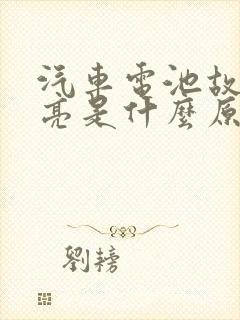 汽車電池故
亮是什麼原
劉鎊